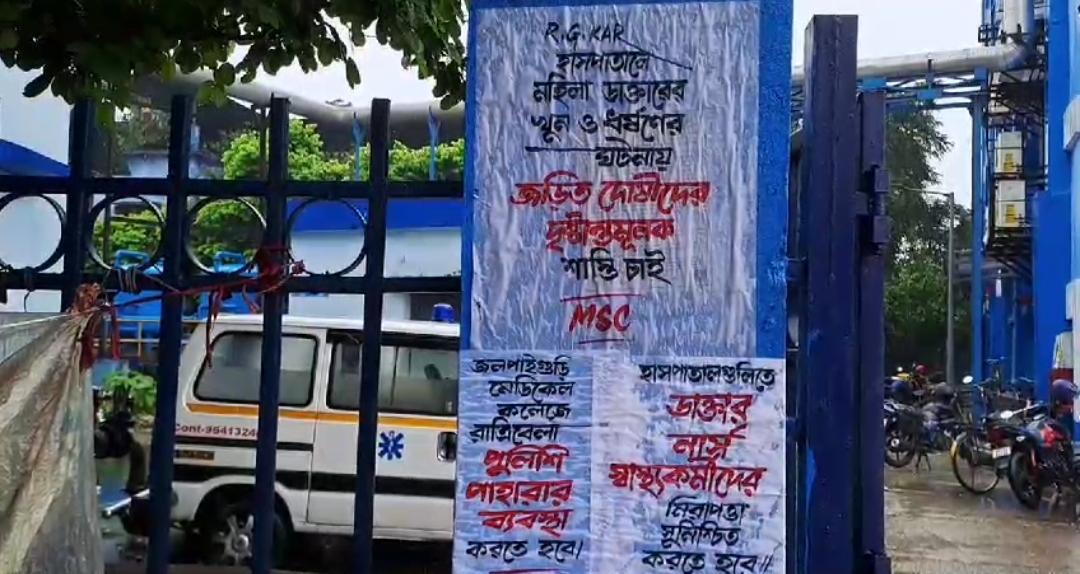 R.G. KAR
হাসপাতালে
মহিলা ডাক্তারের
খুন ও ধর্ষণের
ঘটনায়
জড়িত দোষীদের
দৃষ্টান্তমূলক
শাস্তি চাই
MSC
জলপাইগুড়ি
মেডিকেল
কলেজে
রাত্রিবেলা
পুলিশি
পাহারার
ব্যবস্থা
করতে হবে।
হাসপাতালগুলিতে
ডাক্তার
নার্স
স্বাস্থ্যকর্মীদের
নিরাপত্তা
সুনিশ্চিত
করতে হবে॥